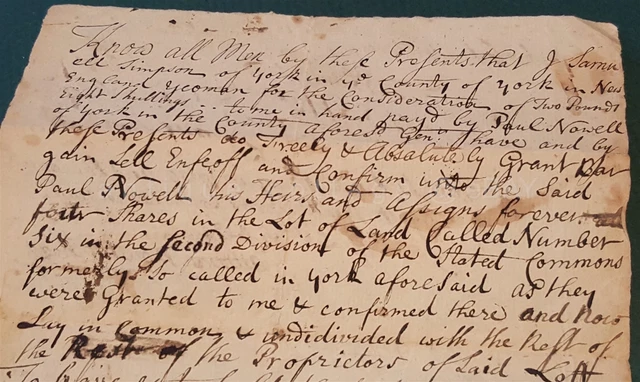 Know all Men by these Presents that I Samu
ell Simpson of York in ye County of York in New
England yeoman for the Consideration of Two Pounds
Eight Shillings to me in hand pay'd by Paul Nowell
of York in the County aforesd Gentn have and by
these Presents do Freely & Absolutely Grant Bar
gain Sell Enfeoff and Confirm unto the said
Paul Nowell his Heirs and Assigns forever
four Shares in the Lot of Land Called Number
Six in the Second Division of the Stated Commons
formerly so called in York aforesaid as they
were Granted to me & confirmed there and now
Lay in Common & undivided with the Rest of
the Rest of the Proprietors of said Lott
To have